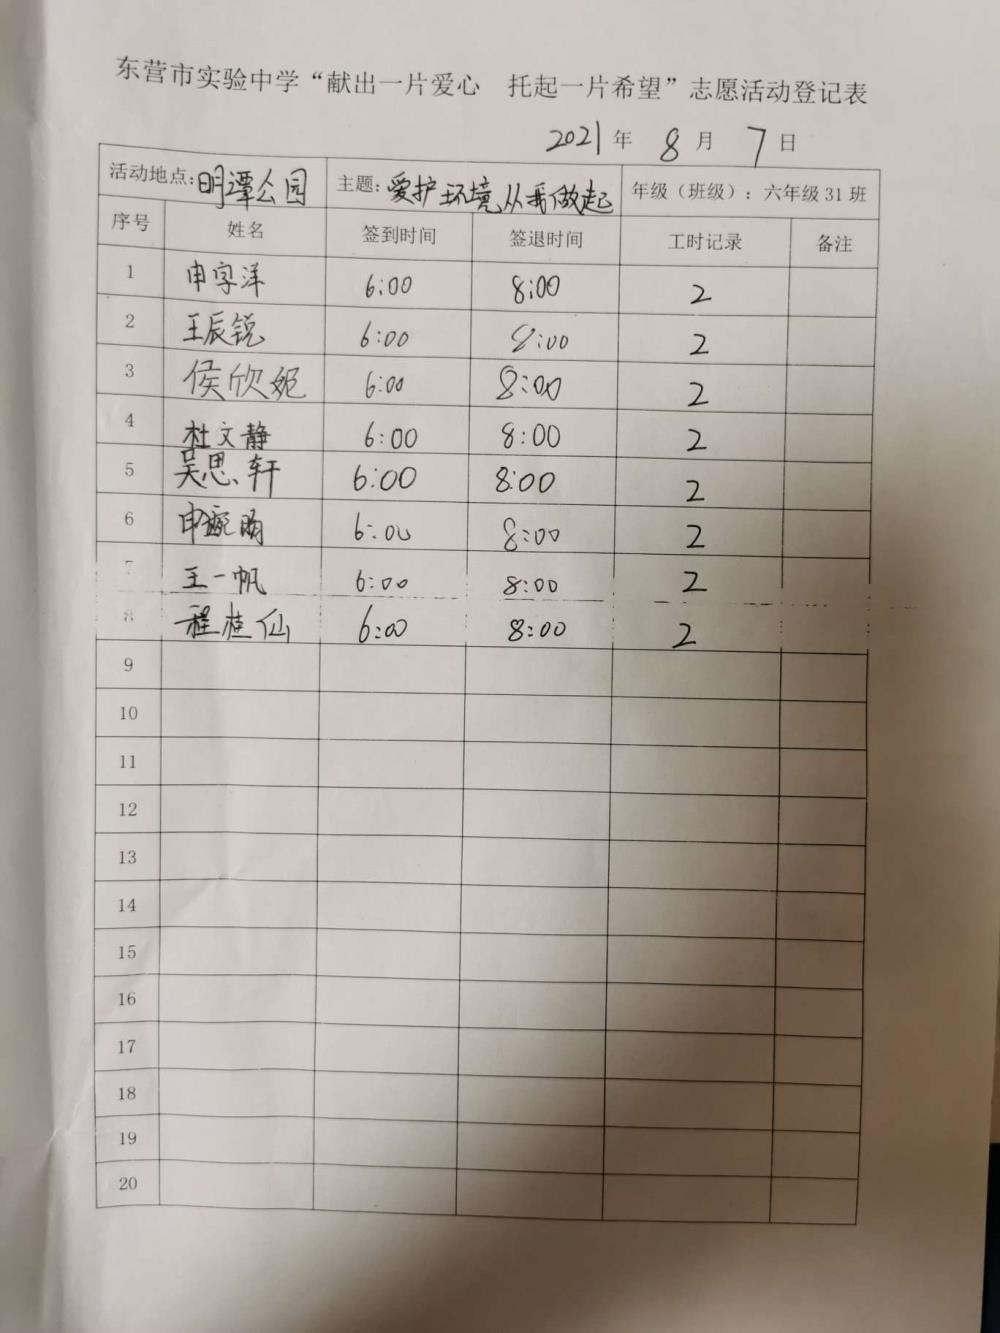 东营市实验中学“献出一片爱心 托起一片希望”志愿活动登记表
2021年 8月 7日
活动地点:明潭公园 主题:爱护环境从我做起 年级（班级）：六年级31班
序号 姓名 签到时间 签退时间 工时记录 备注
1 申字洋 6:00 8:00 2
2 王辰锐 6:00 8:00 2
3 侯欣妮 6:00 8:00 2
4 杜文静 6:00 8:00 2
5 吴思轩 6:00 8:00 2
6 申 6:00 8:00 2
7 王一帆 6:00 8:00 2
8 程桂仙 6:00 8:00 2
9
10
11
12
13
14
15
16
17
18
19
20